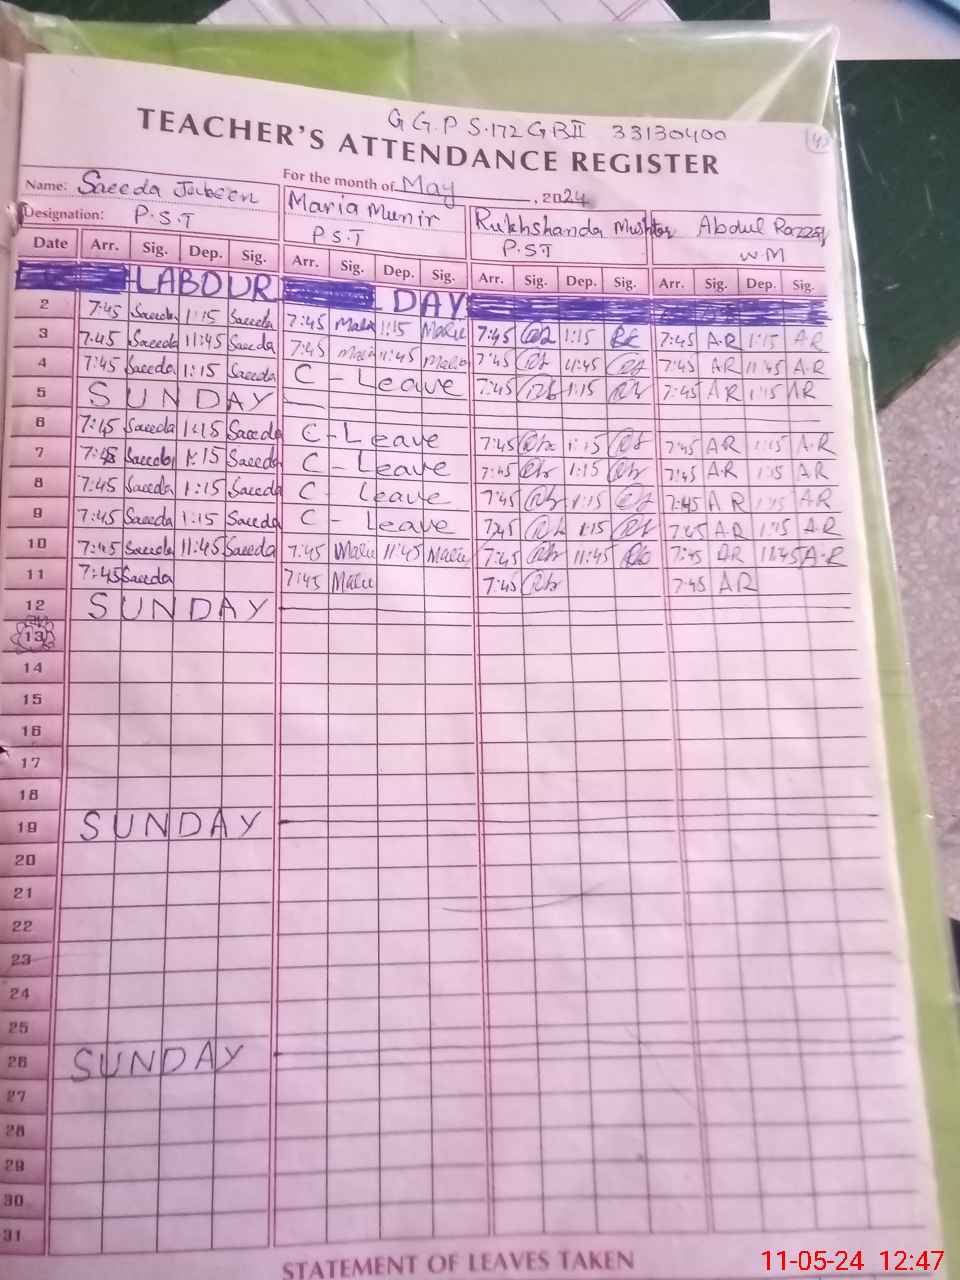 G G.P S.172 G B II 33130400
TEACHER'S ATTENDANCE REGISTER
For the month of May, 2024
Name: Saeeda Jabeen Maria Munir Rukhshanda Mushtaq Abdul Razzaq
Designation: P.S.T P.S.T P.S.T W.M
Date Arr. Sig. Dep. Sig. Arr. Sig. Dep. Sig. Arr. Sig. Dep. Sig. Arr. Sig. Dep. Sig.
LABOUR DAY
2 7:45 Saeeda 1:15 Saeeda 7:45 Maria 1:15 Maria 7:45 1:15 7:45 A.R 1:15 A.R
3 7:45 Saeeda 11:45 Saeeda 7:45 Maria 11:45 Maria 7:45 11:45 7:45 AR 11:45 A.R
4 7:45 Saeeda 1:15 Saeeda C - Leave 7:45 1:15 7:45 AR 1:15 AR
5 SUNDAY
6 7:45 Saeeda 1:15 Saeeda C - Leave 7:45 1:15 7:45 A.R 1:15 A.R
7 7:45 Saeeda 1:15 Saeeda C - Leave 7:45 1:15 7:45 AR 1:15 AR
8 7:45 Saeeda 1:15 Saeeda C - Leave 7:45 1:15 7:45 A R 1:15 AR
9 7:45 Saeeda 1:15 Saeeda C - Leave 7:45 1:15 7:45 A.R 1:15 A.R
10 7:45 Saeeda 11:45 Saeeda 7:45 Maria 11:45 Maria 7:45 11:45 7:45 AR 11:45 A.R
11 7:45 Saeeda 7:45 Maria 7:45 7:45 AR
12 SUNDAY
13
14
15
16
17
18
19 SUNDAY
20
21
22
23
24
25
26 SUNDAY
27
28
29
30
31
STATEMENT OF LEAVES TAKEN
11-05-24 12:47